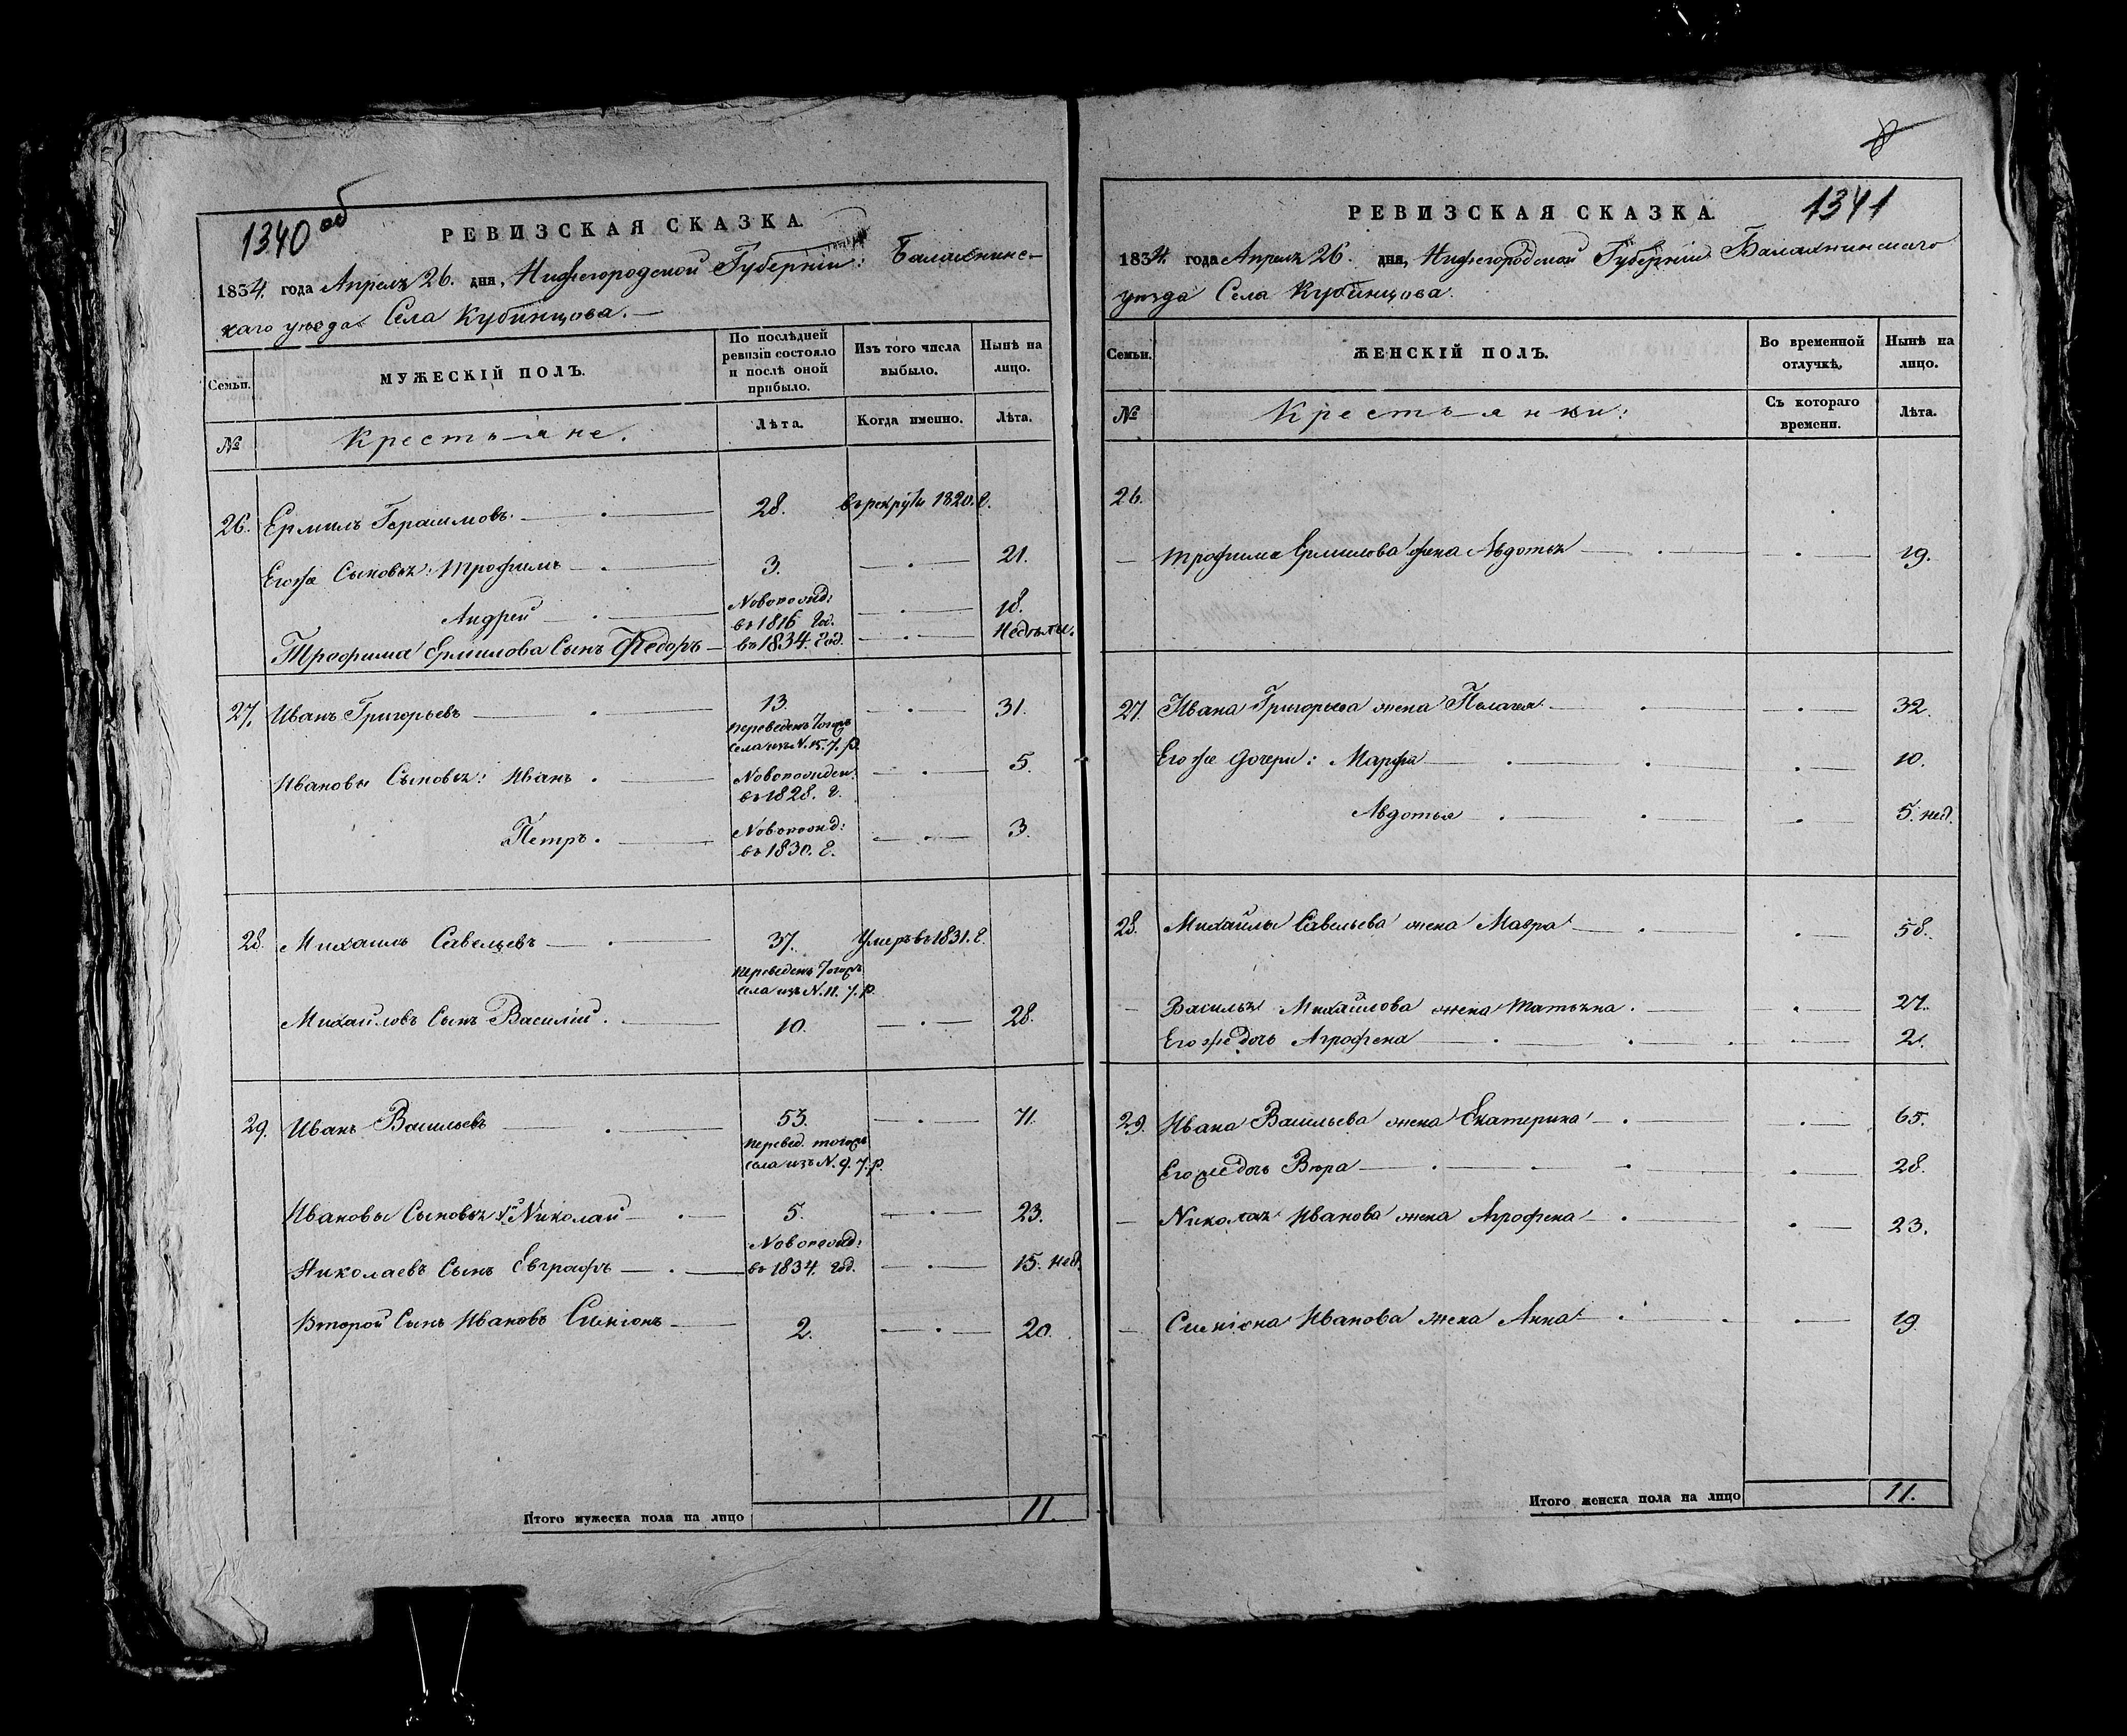 1340 об
РЕВИЗСКАЯ СКАЗКА.
1834. года Апреля 26. дня, Нижегородской Губерніи: Балахнинс-
каго уѣзда Села Кубинцова.
Семьи.
МУЖЕСКІЙ ПОЛЪ.
По послѣдней ревизіи состояло и послѣ оной прибыло.
Изъ того числа выбыло.
Нынѣ на лицо.
№
Крестьяне.
Лѣта.
Когда именно.
Лѣта.
26. Ермилъ Герасимовъ. 28. въ рекруты 1820. г.
Егоже Сыновья: Трофимъ 3. 21.
Андрей Новорожд: въ 1816 год. 18.
Трофима Ермилова Сынъ Федоръ въ 1834. год. Недѣли.
27. Иванъ Григорьевъ 13. 31.
переведенъ тогожъ
села изъ N. 15. 7. р.
Ивановы Сыновья: Иванъ. Новорожден: въ 1828. г. 5.
Петръ. Новорожд: въ 1830. г. 3.
28. Михаилъ Савельевъ 37. Умеръ въ 1831. г.
переведенъ тогожъ
села изъ N. 11. 7. р.
Михайловъ Сынъ Василій. 10. 28.
29. Иванъ Васильевъ 53. 71.
перевед. тогожъ
села изъ N. 9. 7. р.
Ивановы Сыновья 1й Николай 5. 23.
Николаевъ Сынъ Евграфъ Новорожд: въ 1834. год. 15. нед.
Второй Сынъ Ивановъ Симіонъ 2. 20.
Итого мужеска пола на лицо 11.
8
1341
РЕВИЗСКАЯ СКАЗКА.
1834. года Апреля 26. дня, Нижегородской Губерніи Балахнинскаго
уѣзда Села Кубинцова.
Семьи.
ЖЕНСКІЙ ПОЛЪ.
Во временной отлучкѣ.
Нынѣ на лицо.
№
Крестьянки:
Съ котораго времени.
Лѣта.
26.
Трофима Ермилова жена Авдотья 19.
27. Ивана Григорьева жена Пелагея 32.
Егоже дочери: Марфа 10.
Авдотья 5. нед.
28. Михайлы Савельева жена Мавра 58.
Василья Михайлова жена Татьяна. 27.
Егоже дочь Агрофена 2.
29. Ивана Васильева жена Екатерина 65.
Егоже дочь Вѣра 28.
Николая Иванова жена Агрофена 23.
Симіона Иванова жена Анна 19.
Итого женска пола на лицо 11.